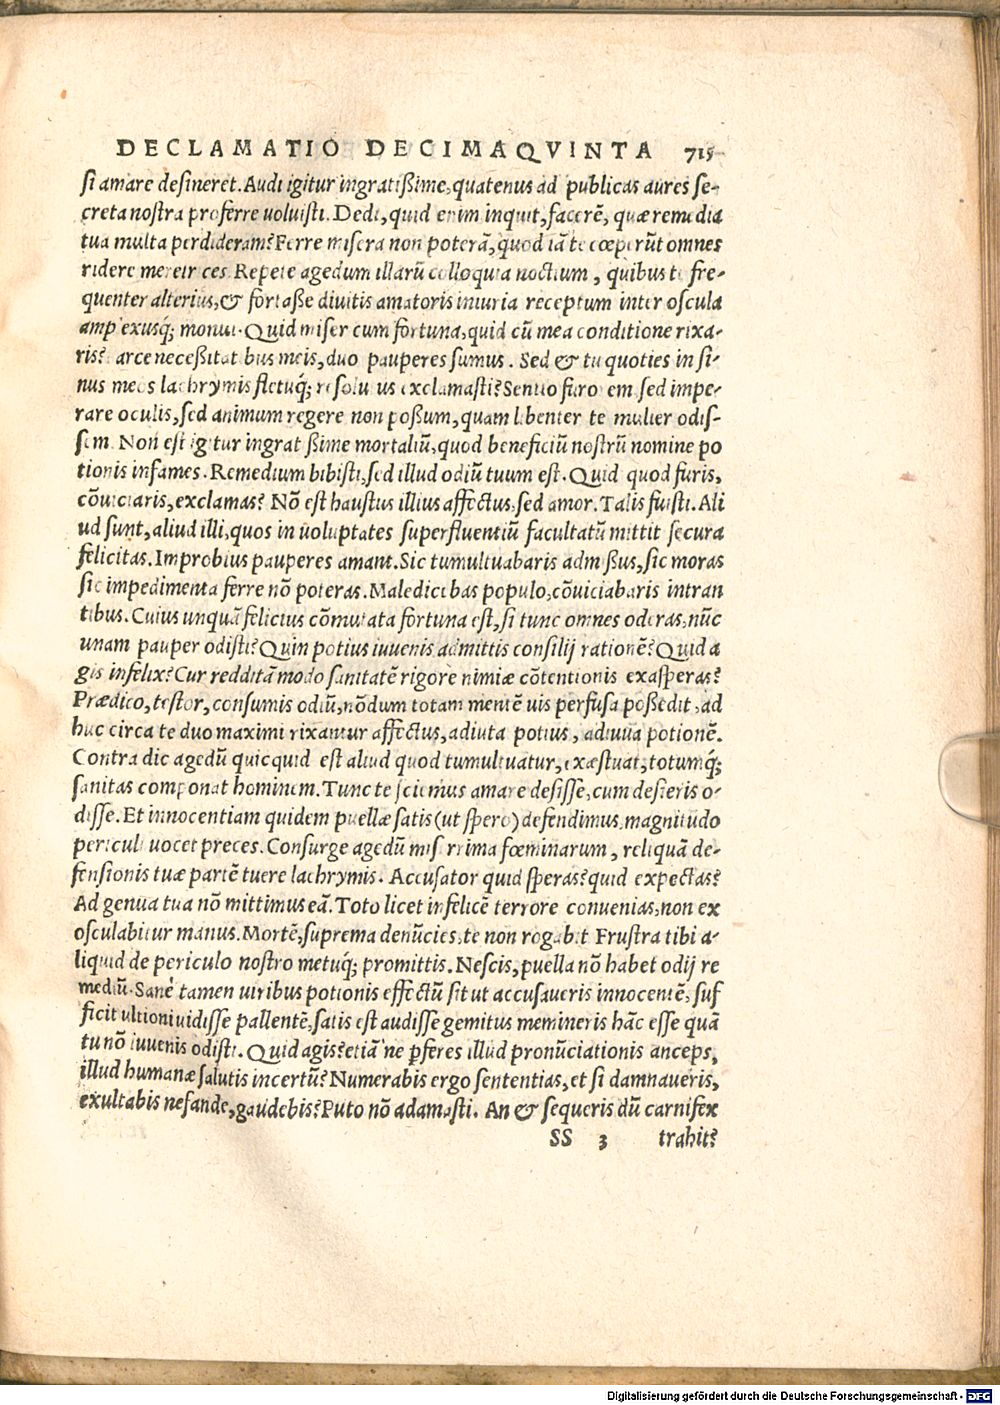 DECLAMATIO DECIMAQVINTA 715
si amare desineret. Audi igitur ingratißime, quatenus ad publicas aures se-
creta nostra proferre uoluisti. Dedi, quid enim inquit, facerē, quæ remedia
tua multa perdideram? Ferre misera non poterā, quod iā te cœperūt omnes
ridere meretrices. Repete agedum illarū colloquia noctium, quibus te fre-
quenter alterius, & fortaße diuitis amatoris iniuria receptum inter oscula
amplexusq́; monui. Quid miser cum fortuna, quid cū mea conditione rixa-
ris? arce neceßitatibus meis, duo pauperes sumus. Sed & tu quoties in si-
nus meos lachrymis fletuq́; resolutus exclamasti? Sentio furorem, sed impe-
rare oculis, sed animum regere non poßum, quam libenter te mulier odis-
sem. Non est igitur ingratißime mortaliū, quod beneficiū nostrū nomine po
tionis infames. Remedium bibisti, sed illud odiū tuum est. Quid quod furis,
cōuiciaris, exclamas? Nō est haustus illius affectus, sed amor. Talis fuisti. Ali
ud sunt, aliud illi, quos in uoluptates superfluentiū facultatū mittit secura
felicitas. Improbius pauperes amant. Sic tumultuabaris admißus, sic moras
sic impedimenta ferre nō poteras. Maledicebas populo, cōuiciabaris intran
tibus. Cuius unquā felicius cōmutata fortuna est, si tunc omnes oderas, nūc
unam pauper odisti? Quin potius iuuenis admittis consilij rationē? Quid a
gis infelix? Cur redditā modo sanitatē rigore nimiæ cōtentionis exasperas?
Prædico, testor, consumis odiū, nōdum totam mentē uis perfusa poßedit, ad
huc circa te duo maximi rixantur affectus, adiuta potius, adiuua potionē.
Contra dic agedū quicquid est aliud quod tumultuatur, exæstuat, totumq́;
sanitas componat hominem. Tunc te sciemus amare desisse, cum desieris o-
disse. Et innocentiam quidem puellæ satis (ut spero) defendimus, magnitudo
periculi uocet preces. Consurge agedū miserrima fœminarum, reliquā de-
fensionis tuæ partē tuere lachrymis. Accusator quid speras? quid expectas?
Ad genua tua nō mittimus eā. Toto licet infelicē terrore conuenias, non ex
osculabitur manus. Mortē, suprema denūcies, te non rogabit Frustra tibi a-
liquid de periculo nostro metuq́; promittis. Nescis, puella nō habet odij re
mediū. Sanè tamen uiribus potionis effectū sit ut accusaueris innocentē, suf
ficit ultioni uidisse pallentē, satis est audisse gemitus memineris hāc esse quā
tu nō iuuenis odisti. Quid agis? etiā ne p̱feres illud pronūciationis anceps,
illud humanæ salutis incertū? Numerabis ergo sententias, et si damnaueris,
exultabis nefande, gaudebis? Puto nō adamasti. An & sequeris dū carnifex
SS 3 trahit?
Digitalisierung gefördert durch die Deutsche Forschungsgemeinschaft - DFG